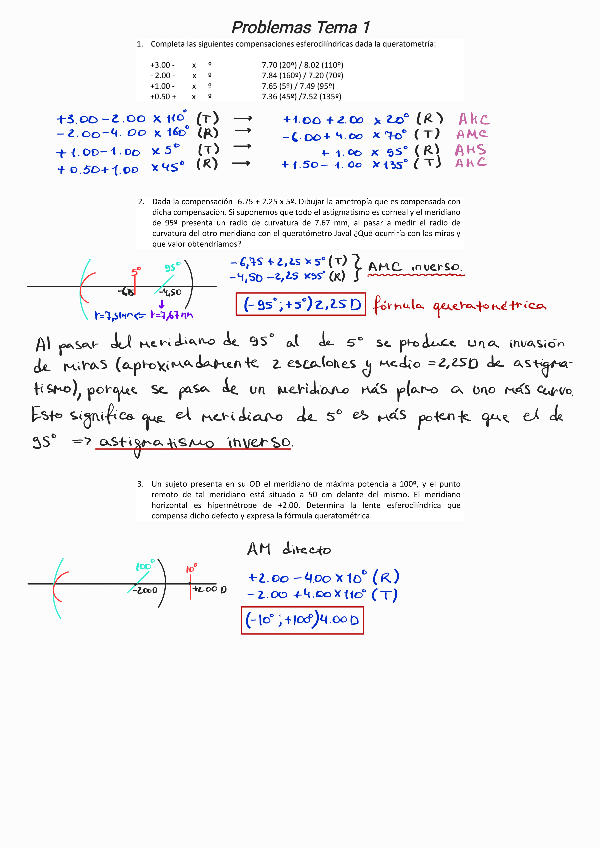 Problemas Tema 1
1. Completa las siguientes compensaciones esferocilíndricas dada la queratometría:
+3.00 - x º 7.70 (20º) / 8.02 (110º)
- 2.00 - x º 7.84 (160º) / 7.20 (70º)
+1.00 - x º 7.65 (5º) / 7.49 (95º)
+0.50 + x º 7.36 (45º) /7.52 (135º)
+3.00 -2.00 x 110° (T) → +1.00 +2.00 x 20° (R) AHC
-2.00-4.00 x 160° (R) → -6.00+4.00 x 70° (T) AMC
+1.00-1.00 x 5° (T) → + 1.00 x 95° (R) AHS
+0.50+1.00 x 45° (R) → +1.50-1.00 x 135° (T) AHC
2. Dada la compensación -6.75 + 2.25 x 5º. Dibujar la ametropía que es compensada con
dicha compensación. Si suponemos que todo el astigmatismo es corneal y el meridiano
de 95º presenta un radio de curvatura de 7.67 mm, al pasar a medir el radio de
curvatura del otro meridiano con el queratómetro Javal ¿Qué ocurriría con las miras y
que valor obtendríamos?
5° 95°
-4,50
r=7,67mm
-6,75 + 2,25 x 5° (T)
-4,50 -2,25 x95° (R)
AMC inverso.
(-95°;+5°) 2,25 D fórmula queratométrica
Al pasar del meridiano de 95° al de 5° se produce una invasión
de miras (aproximadamente 2 escalones y medio = 2,25D de astigma-
tismo), porque se pasa de un meridiano más plano a uno más curvo.
Esto significa que el meridiano de 5° es más potente que el de
95° => astigmatismo inverso.
3. Un sujeto presenta en su OD el meridiano de máxima potencia a 100º, y el punto
remoto de tal meridiano está situado a 50 cm delante del mismo. El meridiano
horizontal es hipermétrope de +2.00. Determina la lente esferocilíndrica que
compensa dicho defecto y expresa la fórmula queratométrica
AM directo
100° 10°
-2.00D +2.00 D
+2.00 -4.00 x 10° (R)
-2.00 +4.00 x 110° (T)
(-10°;+100°) 4.00 D